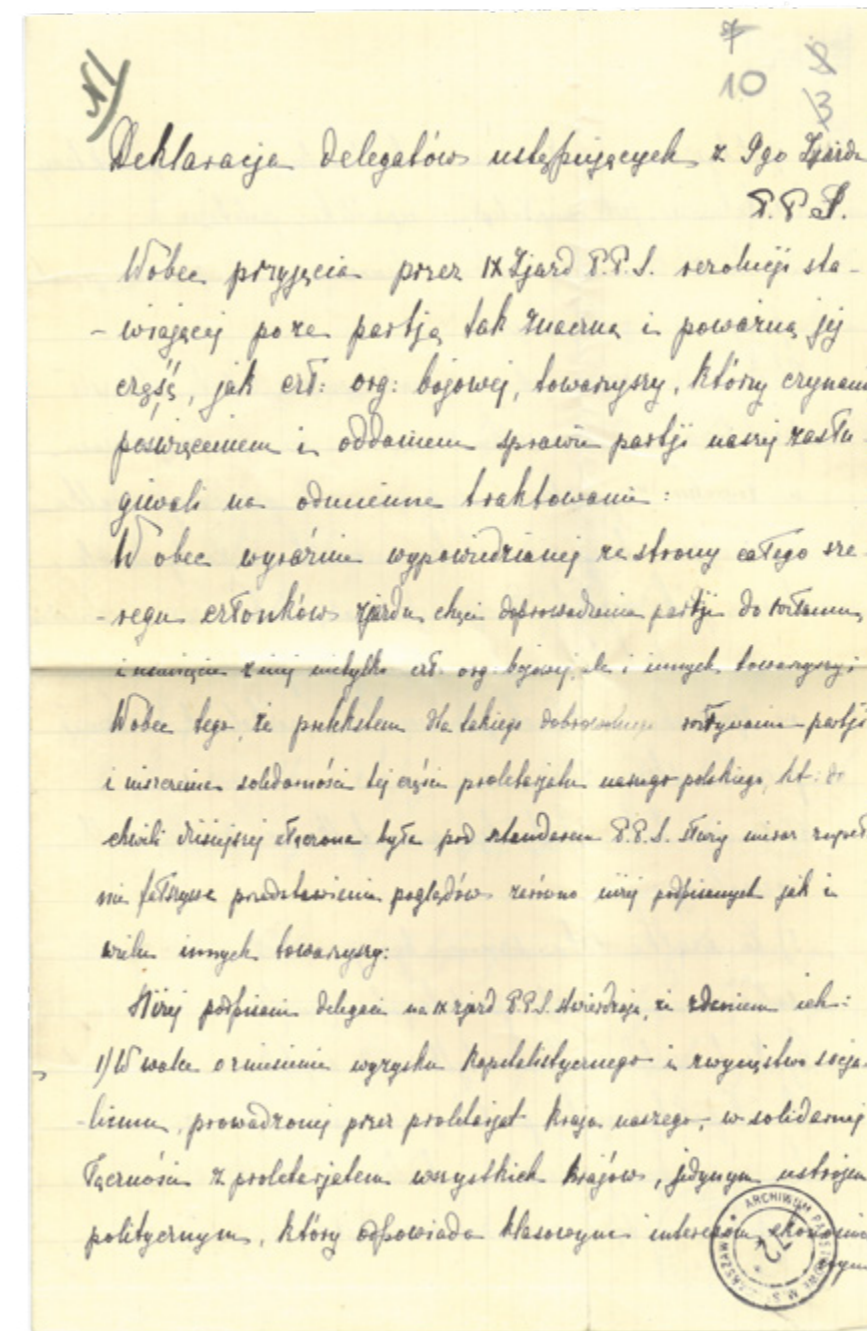 N1
10
3
Deklaracja delegatów ustępujących z 9go Zjazdu
P.P.S.
Wobec przyjęcia przez IX Zjazd P.P.S. rezolucji sta-
- wiającej poza partją tak znaczną i poważną jej
część, jak czł: org: bojowej, towarzyszy, którzy czynami
poświęceniem i oddaniem sprawie partji naszej zasłu-
giwali na odmienne traktowanie:
Wobec wyraźnie wypowiedzianej ze strony całego sze-
- regu członków zjazdu chęci doprowadzenia partji do rozłamu,
i usunięcia z niej nietylko czł. org. bojowej, ale i innych towarzyszy;
Wobec tego, że pretekstem dla takiego rozrywania partji
i niszczenia solidarności tej części proletarjatu naszego polskiego, kt: do
chwili dzisiejszej złączona była pod sztandarem P.P.S. służy nieraz zupeł
nie fałszywe przedstawienie poglądów zarówno niżej podpisanych jak i
wielu innych towarzyszy:
Niżej podpisani delegaci na IX zjazd P.P.S. stwierdzają, że zdaniem ich:
1) W walce o zniesienie wyzysku kapitalistycznego i zwycięstwo socja-
- lizmu, prowadzonej przez proletarjat kraju naszego, w solidarnej
łączności z proletarjatem wszystkich krajów, jedynym ustrojem
politycznym, który odpowiada klasowym interesom ekonomicz
nym
ARCHIWUM PAŃSTWOWE M.ST. WARSZAWY
72